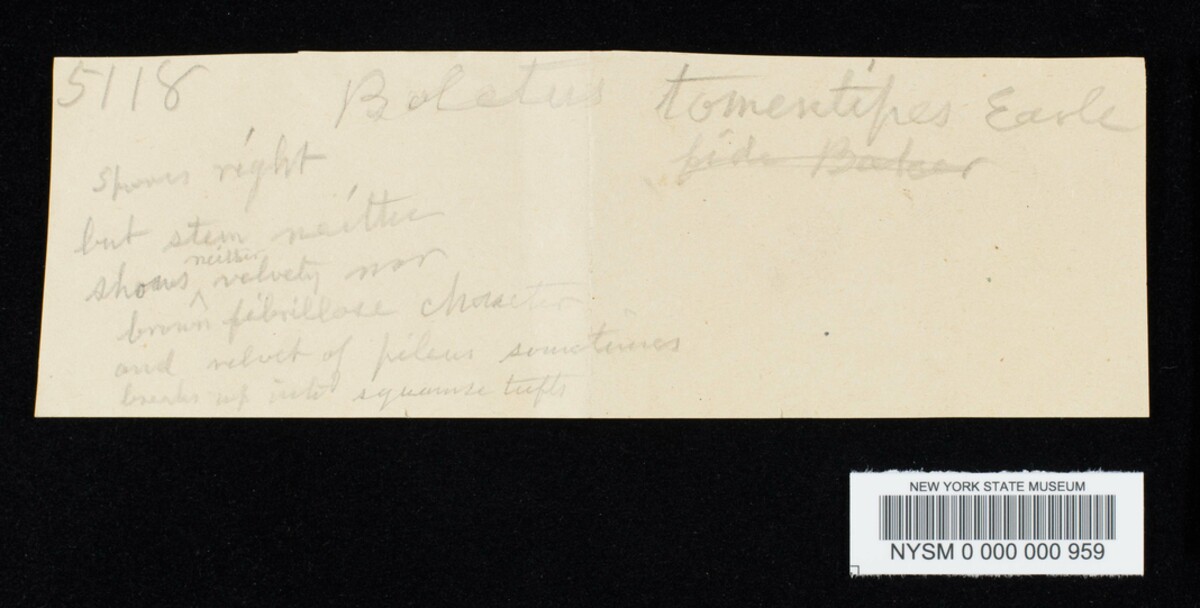 5118 Boletus tomentipes Earle
fide Baker
Spores right
but stem neither
shows neither velvety nor
brown fibrillose character
and velvet of pileus sometimes
breaks up into squamose tufts
NEW YORK STATE MUSEUM
NYSM 0 000 000 959